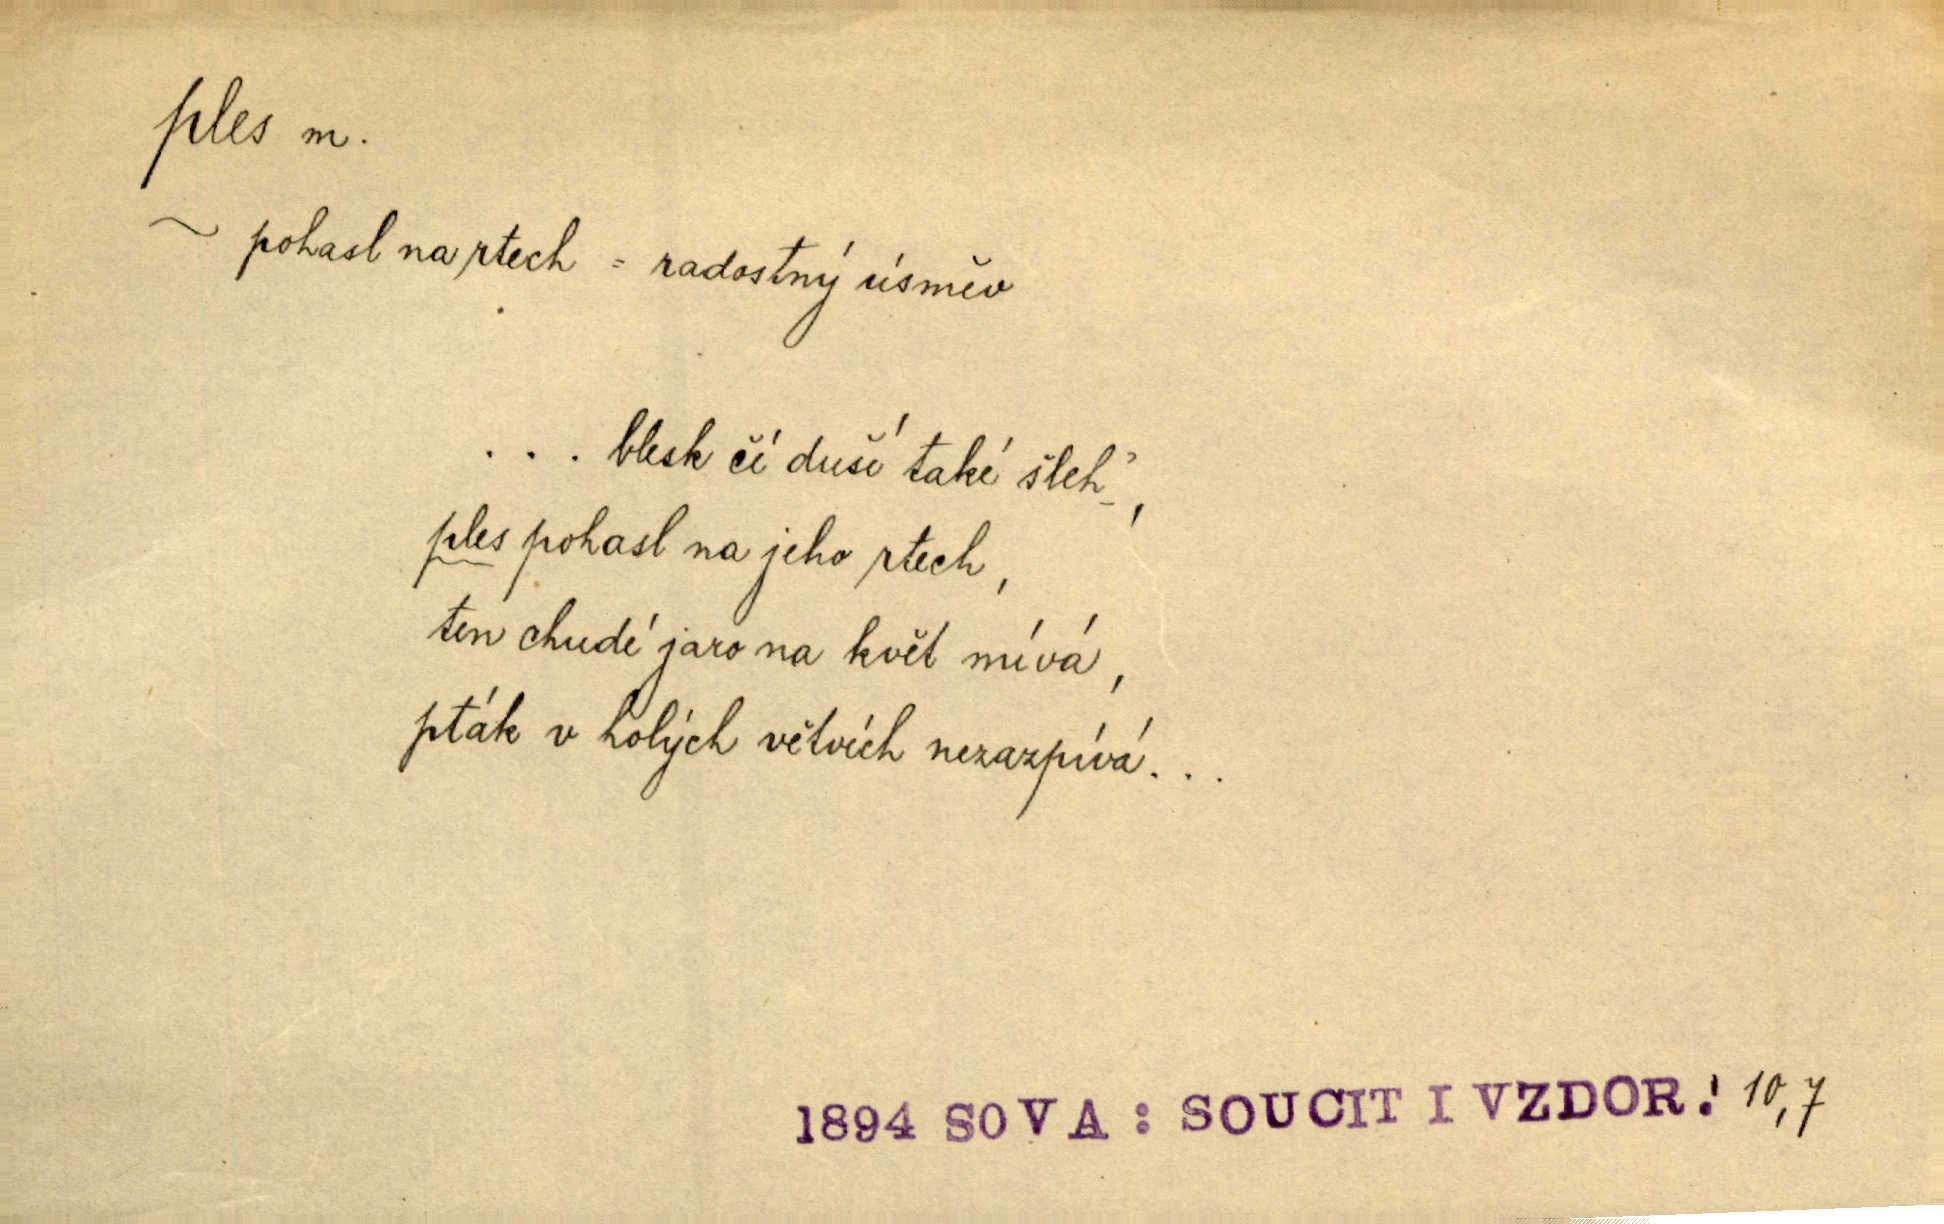 ples m.
~ pohasl na rtech = radostný úsměv
. . . blesk čí duší také šleh',
ples pohasl na jeho rtech,
ten chudé jaro na květ mívá,
pták v holých větvích nezazpívá. . .
1894 SOVA: SOUCIT I VZDOR! 10,7